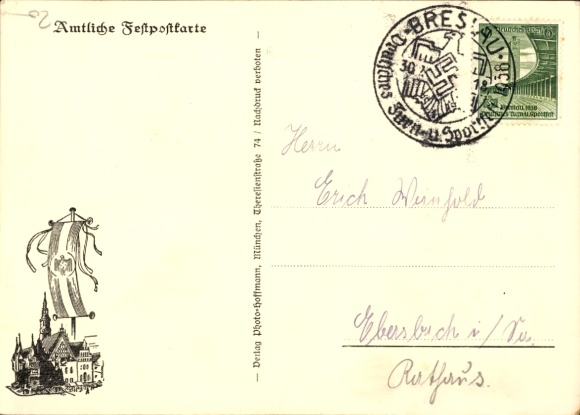 Amtliche Festpostkarte
BRESLAU
Deutsches Turn- u. Sport
1938
Breslau 1938
Deutsches Turn u. Sportfest
— Verlag Photo-Hoffmann, München, Theresienstraße 74 / Nachdruck verboten —
Herrn
Erich Weinhold
Ebersbach i/Sa.
Rathaus.